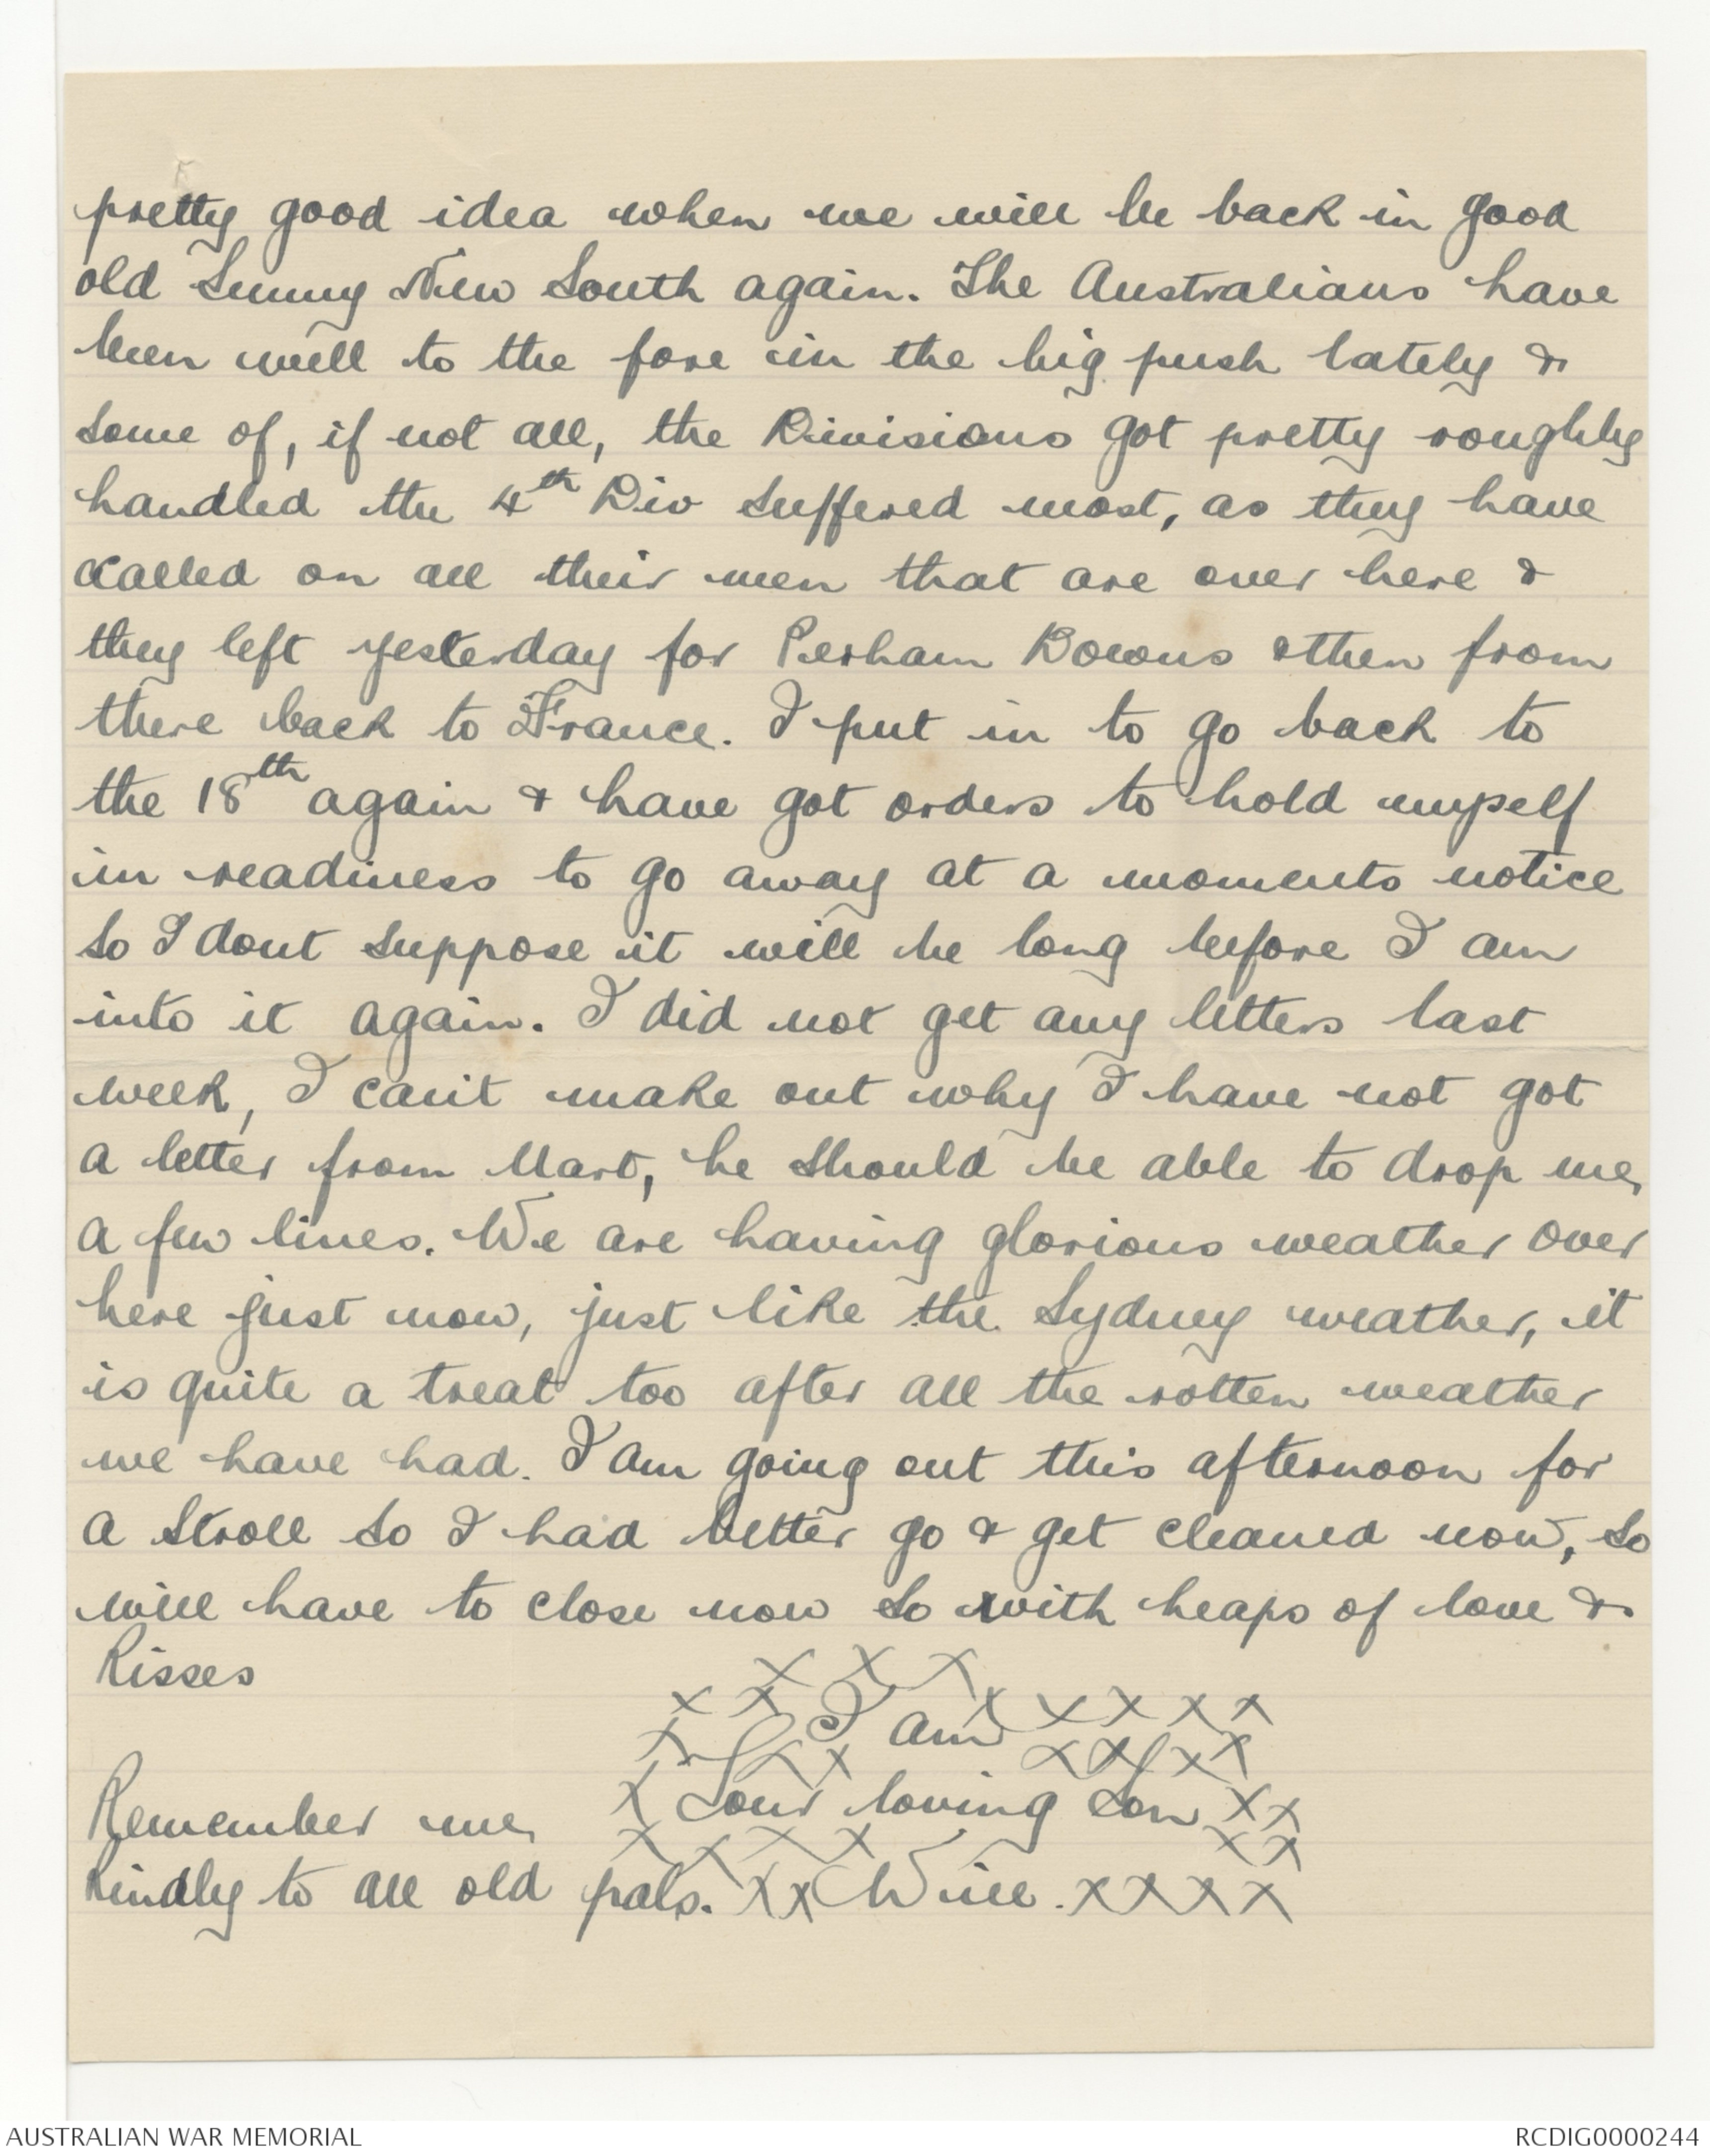 pretty good idea when we will be back in good
old Sunny New South again. The Australians have
been well to the fore in the big push lately &
some of, if not all, the Divisions got pretty roughly
handled the 4th Div suffered most, as they have
called on all their men that are over here &
they left yesterday for Perham Downs & then from
there back to France. I put in to go back to
the 18th again & have got orders to hold myself
in readiness to go away at a moments notice
so I dont suppose it will be long before I am
into it again. I did not get any letters last
week, I can't make out why I have not got
a letter from Mart, he should be able to drop me
a few lines. We are having glorious weather over
here just now, just like the Sydney weather, it
is quite a treat too after all the rotten weather
we have had. I am going out this afternoon for
a stroll so I had better go & get cleaned now, so
will have to close now so with heaps of love &
Kisses
x x x
x x I am x x x x x
x x x x x x x
x Your loving Son x x
Remember me
x x x x x x
Kindly to all old pals. x x Will. x x x x
AUSTRALIAN WAR MEMORIAL
RCDIG0000244